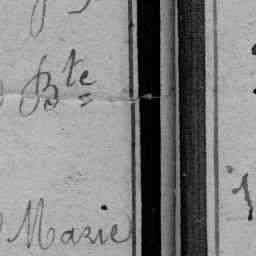 Bte
Marie